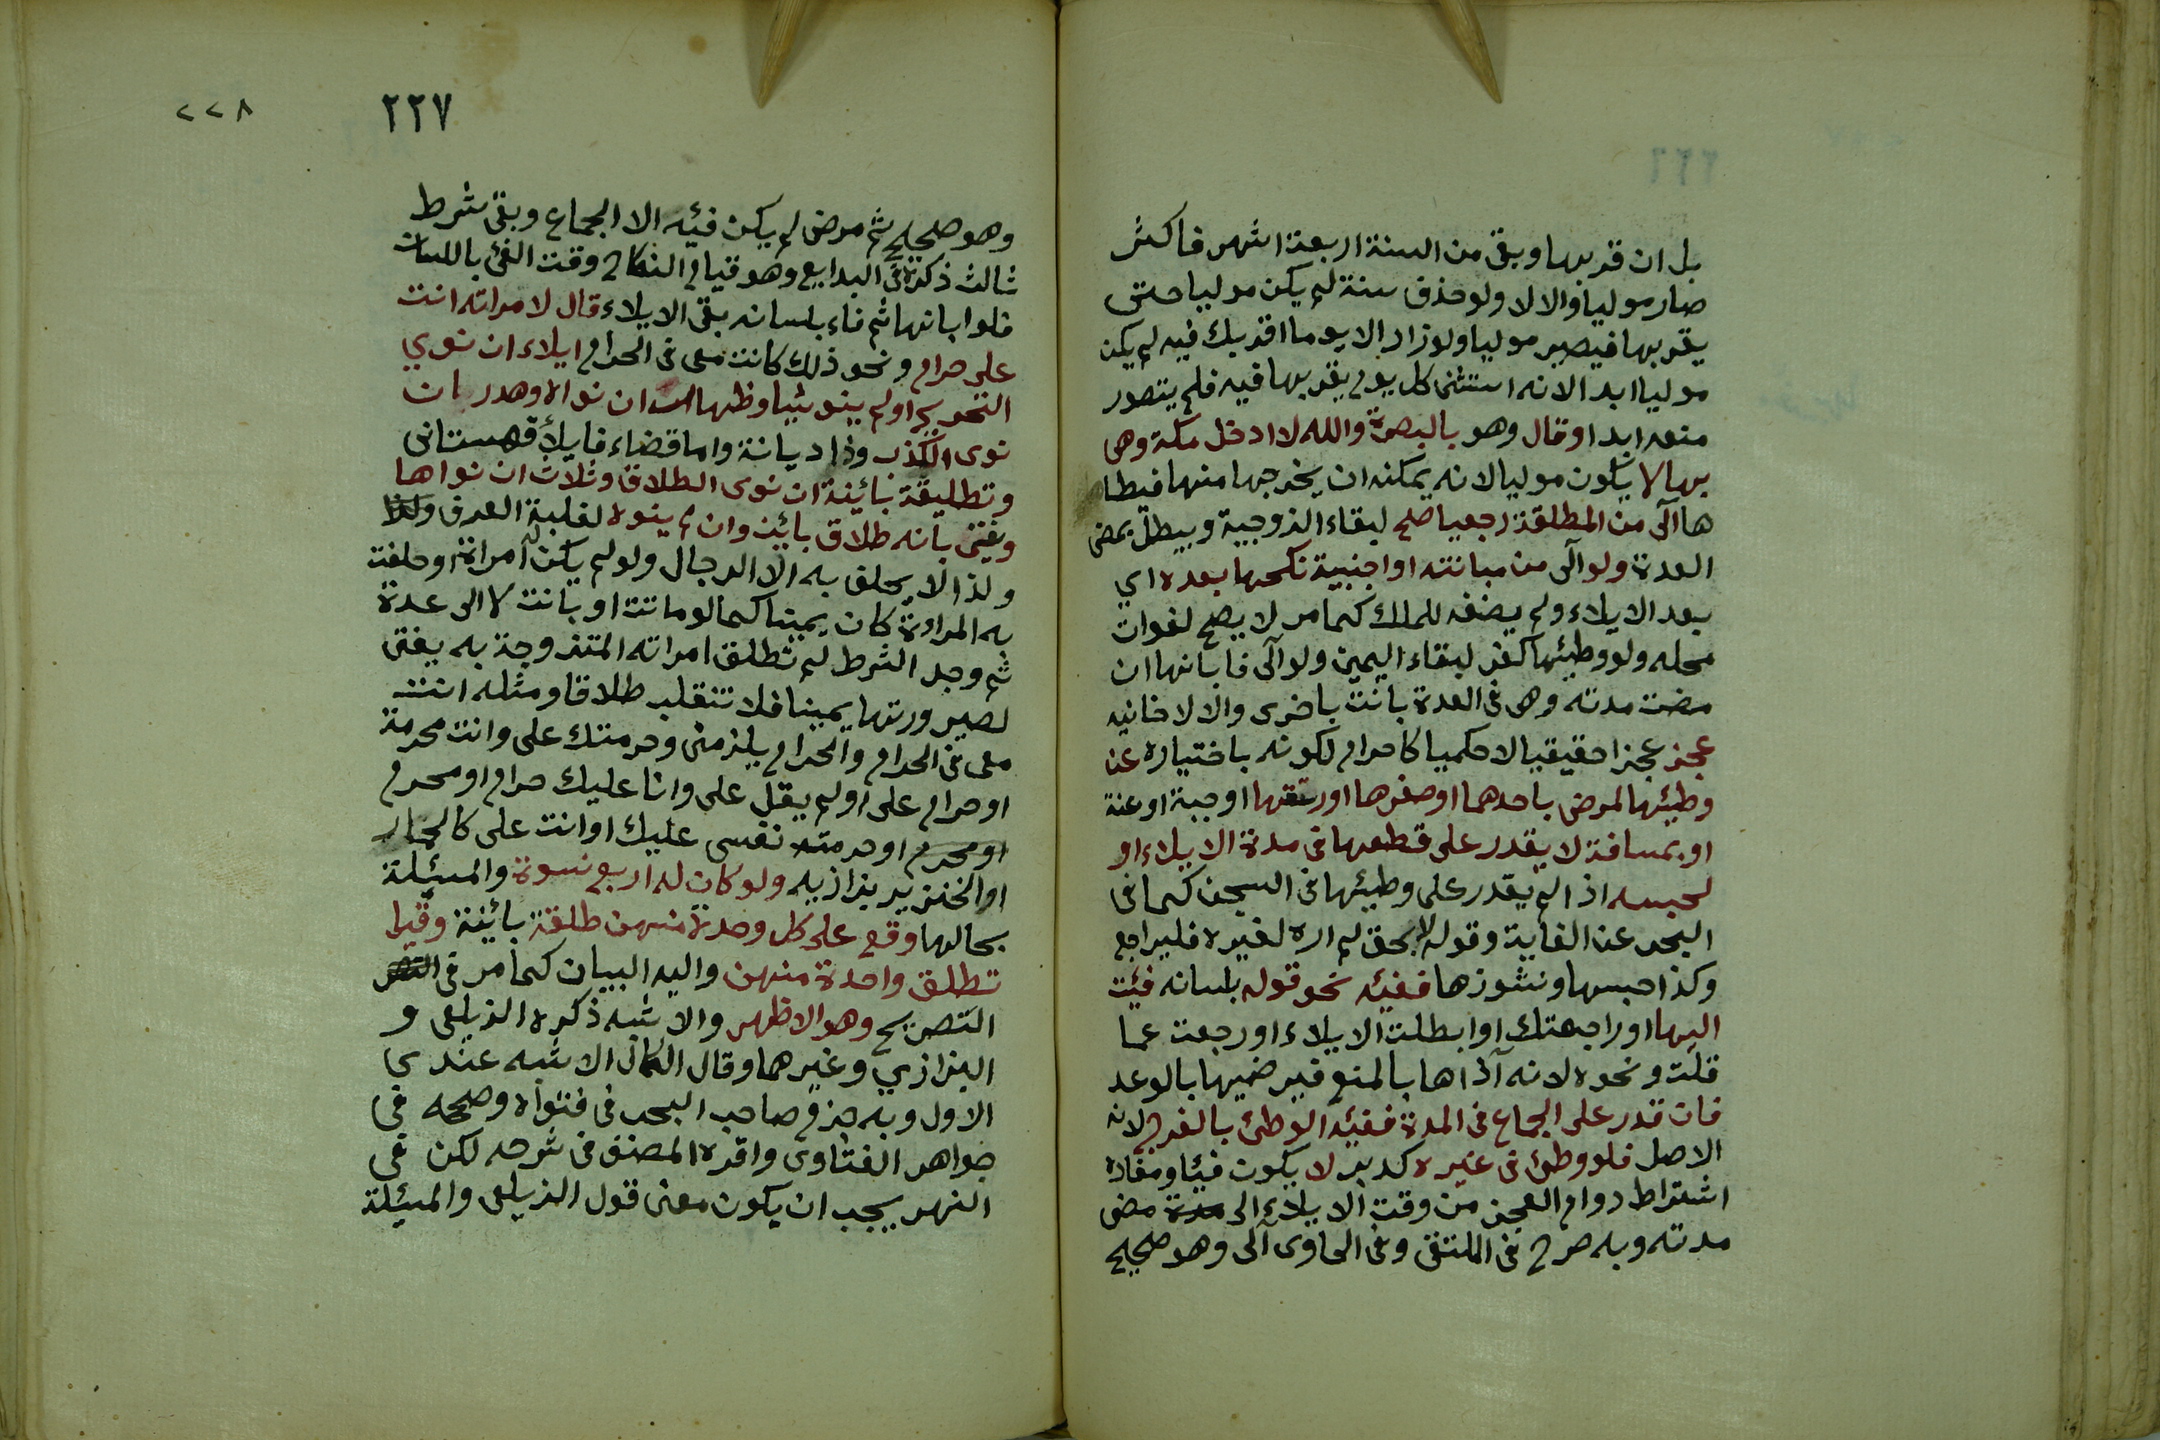 بل ان قربها وبقى من السنة اربعة اشهر فاكثر
صار موليا والا لا ولو حذف سنة لم يكن موليا حتى
يقربها فيصير موليا ولو زاد الا يوما اقربك فيه لم يكن
موليا ابدا لانه استثنى كل يوم يقربها فيه فلم يتصور
منعه ابدا وقال وهو بالبصرة والله لا ادخل مكة وهى
بها لا يكون موليا لانه يمكنه ان يخرجها منها فيطا
ها آلى من المطلقة رجعيا صح لبقاء الزوجية ويبطل بمضى
العدة ولو آلى من مبانته او اجنبية نكحها بعده اي
بعد الايلاء ولم يضفه للملك كما مر لا يصح لفوات
محله ولو وطيئها كفر لبقاء اليمين ولو آلى فابانها ان
مضت مدته وهى فى العدة بانت باخرى والا لا خانيه
عجز عجزا حقيقيا لا حكميا كاحرام لكونه باختياره عن
وطيئها لمرض باحدهما او صغرها او رتقها او جبة او عنة
او بمسافة لا يقدر على قطعها فى مدة الايلاء او
لحبسه اذا لم يقدر على وطيئها فى السجن كما فى
البحر عن الغاية وقوله لا بحق لم اره لغيره فليراجع
وكذا حبسها ونشوزها ففيئه نحو قوله بلسانه فيئت
اليها او راجعتك او ابطلت الايلاء او رجعت عما
قلت ونحوه لانه آذاها بالمنع فيرضيها بالوعد
فان قدر على الجماع فى المدة ففيئه الوطئ بالفرج لانه
الاصل فلو وطئ فى غيره كدبر لا يكون فيئا ومفاده
اشتراط دوام العجز من وقت الايلاء الى مدة مضى
مدته وبه صرح فى الملتقى وفى الحاوى آلى وهو صحيح
٢٢٧
٢٢٨
وهو صحيح ثم مرض لم يكن فيئه الا الجماع وبقى شرط
ثالث ذكره فى البدايع وهو قيام النكاح وقت الفئ باللسان
فلو ابانها ثم فاء بلسانه بقى الايلاء قال لامراته انت
على حرام ونحو ذلك كانت معى فى الحرام ايلاء ان نوى
التحريم او لم ينو شيا وظهار ان نواه وهدر ان
نوى الكذب وذا ديانة واما قضاء فايلأ قهستانى
وتطليقة بائينة ان نوى الطلاق وثلاث ان نواها
ويفتى بانه طلاق بائن وان لم ينوه لغلبة العرف ولذا
ولذا لا يحلف به الا الرجال ولو لم يكن له امراة او حلفت
به المراة كان يمينا كما لو ماتت او بانت لا الى عدة
ثم وجد الشرط لم تطلق امراته المتزوجة به يفتى
لصيرورتها يمينا فلا تنقلب طلاقا ومثله انت
معى فى الحرام والحرام يلزمنى وحرمتك على وانت محرمة
او حرام على او لم يقل على وانا عليك حرام او محرم
او محرم او حرمت نفسى عليك او انت على كالحمار
او الخنزير بزازيه ولو كان له اربع نسوة والمسئلة
بحالها وقع على كل وحدة منهن طلقة بائنة وقيل
تطلق واحدة منهن واليه البيان كما مر فى
التصريح وهو الاظهر والاشبه ذكره الزيلعى و
البزازي وغيرهما وقال الكمال الاشبه عندى
الاول وبه جزم صاحب البحر فى فتواه وصححه فى
جواهر الفتاوى واقره المصنف فى شرحه لكن فى
النهر يجب ان يكون معنى قول الزيلعى والمسئلة